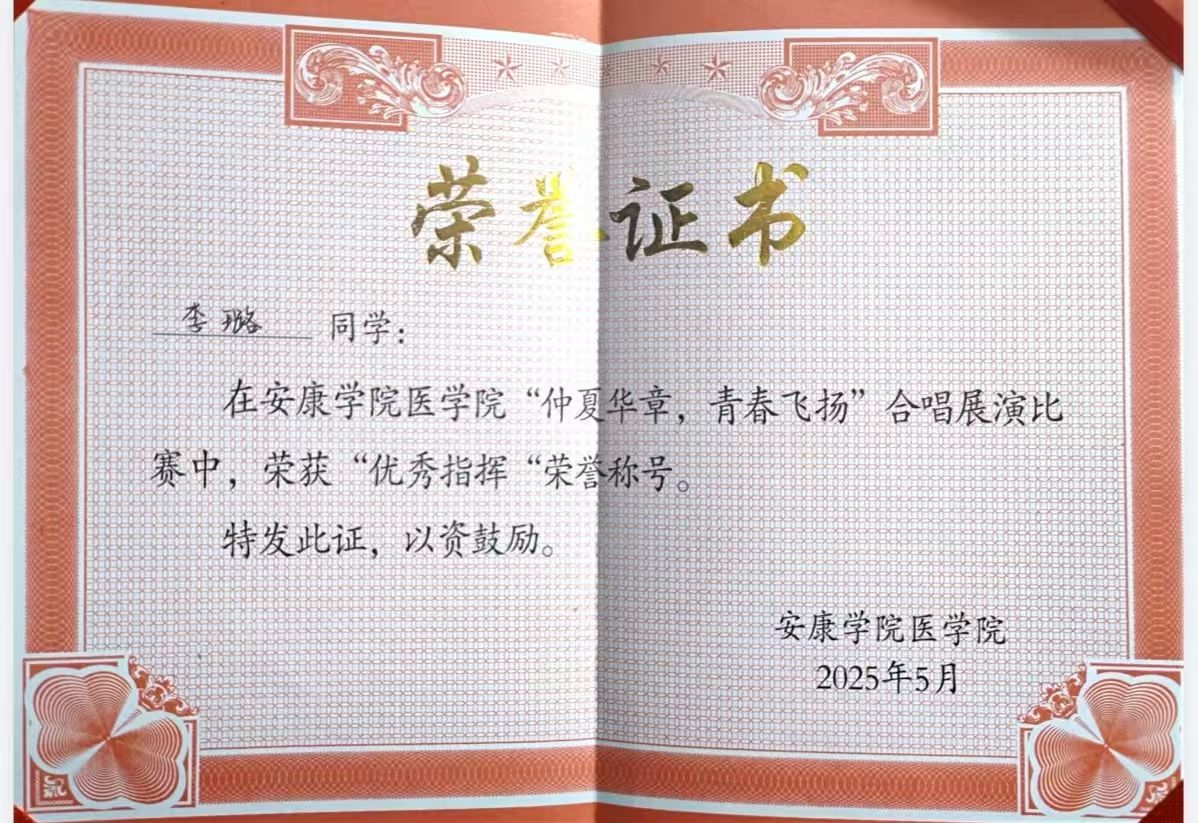 荣誉证书
李璐 同学：
在安康学院医学院“仲夏华章，青春飞扬”合唱展演比
赛中，荣获“优秀指挥“荣誉称号。
特发此证，以资鼓励。
安康学院医学院
2025年5月